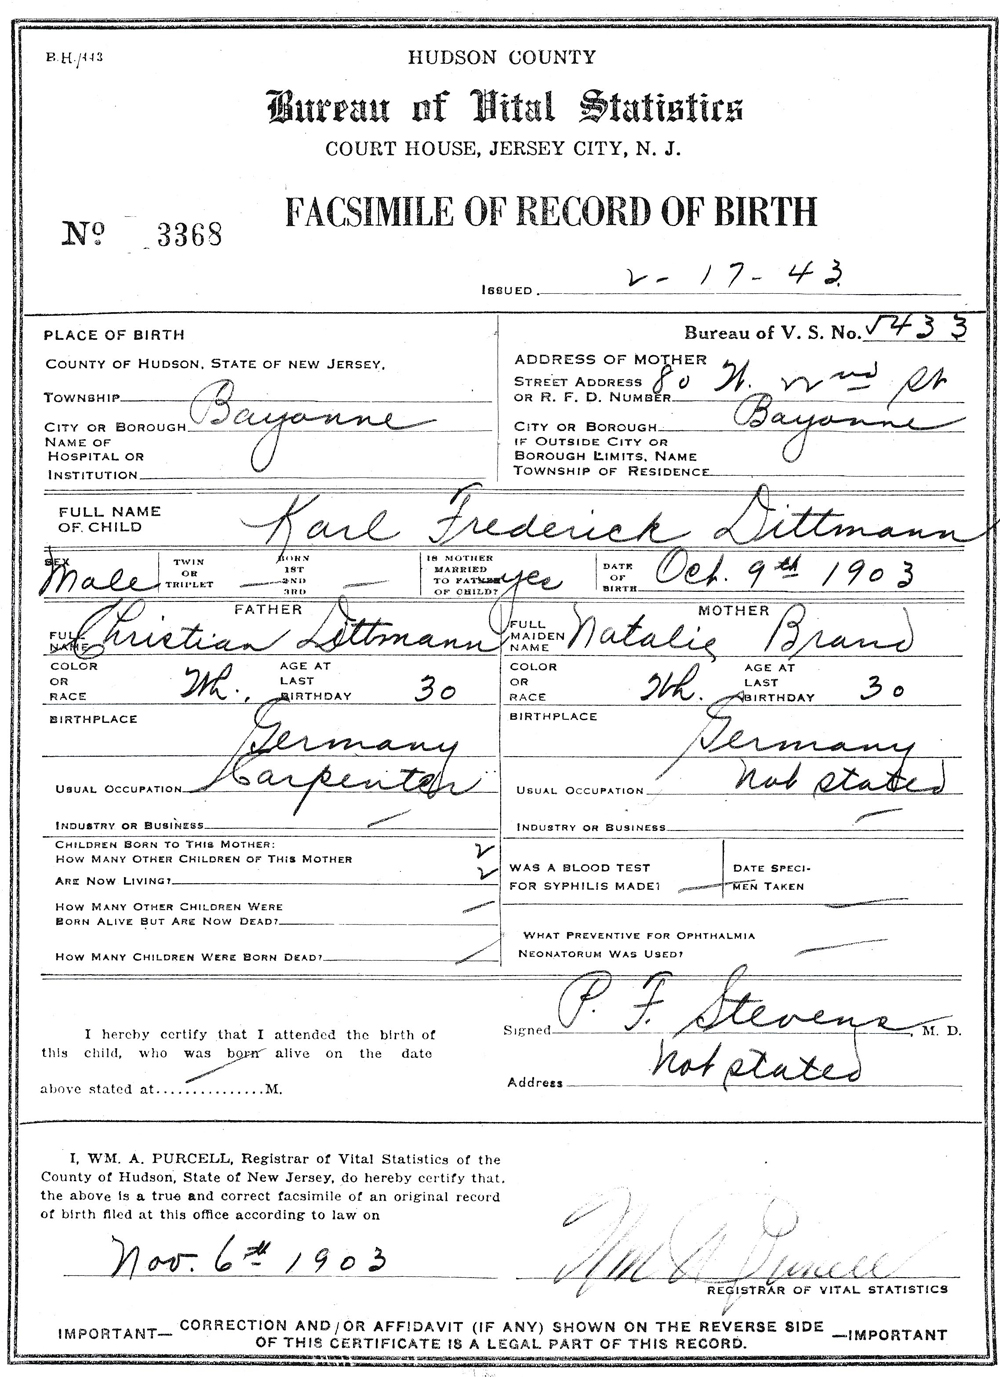 B.H./113
HUDSON COUNTY
Bureau of Vital Statistics
COURT HOUSE, JERSEY CITY, N. J.
FACSIMILE OF RECORD OF BIRTH
No 3368
ISSUED 2-17-43
PLACE OF BIRTH
COUNTY OF HUDSON, STATE OF NEW JERSEY.
TOWNSHIP
CITY OR BOROUGH Bayonne
NAME OF
HOSPITAL OR
INSTITUTION
Bureau of V. S. No. 5433
ADDRESS OF MOTHER
STREET ADDRESS 80 W. 22nd St
OR R. F. D. NUMBER
CITY OR BOROUGH Bayonne
IF OUTSIDE CITY OR
BOROUGH LIMITS, NAME
TOWNSHIP OF RESIDENCE
FULL NAME
OF CHILD Karl Frederick Dittmann
SEX Male
TWIN
OR
TRIPLET —
BORN
1ST
2ND
3RD —
IS MOTHER
MARRIED
TO FATHER
OF CHILD? yes
DATE
OF
BIRTH Oct. 9th 1903
FATHER
FULL
NAME Christian Dittmann
COLOR
OR
RACE Wh.
AGE AT
LAST
BIRTHDAY 30
BIRTHPLACE
Germany
USUAL OCCUPATION Carpenter
INDUSTRY OR BUSINESS —
MOTHER
FULL
MAIDEN
NAME Natalie Brand
COLOR
OR
RACE Wh.
AGE AT
LAST
BIRTHDAY 30
BIRTHPLACE
Germany
USUAL OCCUPATION Not stated
INDUSTRY OR BUSINESS —
CHILDREN BORN TO THIS MOTHER:
HOW MANY OTHER CHILDREN OF THIS MOTHER 2
ARE NOW LIVING? 2
HOW MANY OTHER CHILDREN WERE
BORN ALIVE BUT ARE NOW DEAD? —
HOW MANY CHILDREN WERE BORN DEAD? —
WAS A BLOOD TEST
FOR SYPHILIS MADE? —
DATE SPECI-
MEN TAKEN —
WHAT PREVENTIVE FOR OPHTHALMIA
NEONATORUM WAS USED? —
I hereby certify that I attended the birth of
this child, who was born alive on the date
above stated at...............M.
Signed P. F. Stevens, M. D.
Address Not stated
I, WM. A. PURCELL, Registrar of Vital Statistics of the
County of Hudson, State of New Jersey, do hereby certify that
the above is a true and correct facsimile of an original record
of birth filed at this office according to law on
Nov. 6th 1903
Wm A Purcell
REGISTRAR OF VITAL STATISTICS
IMPORTANT— CORRECTION AND/OR AFFIDAVIT (IF ANY) SHOWN ON THE REVERSE SIDE —IMPORTANT
OF THIS CERTIFICATE IS A LEGAL PART OF THIS RECORD.